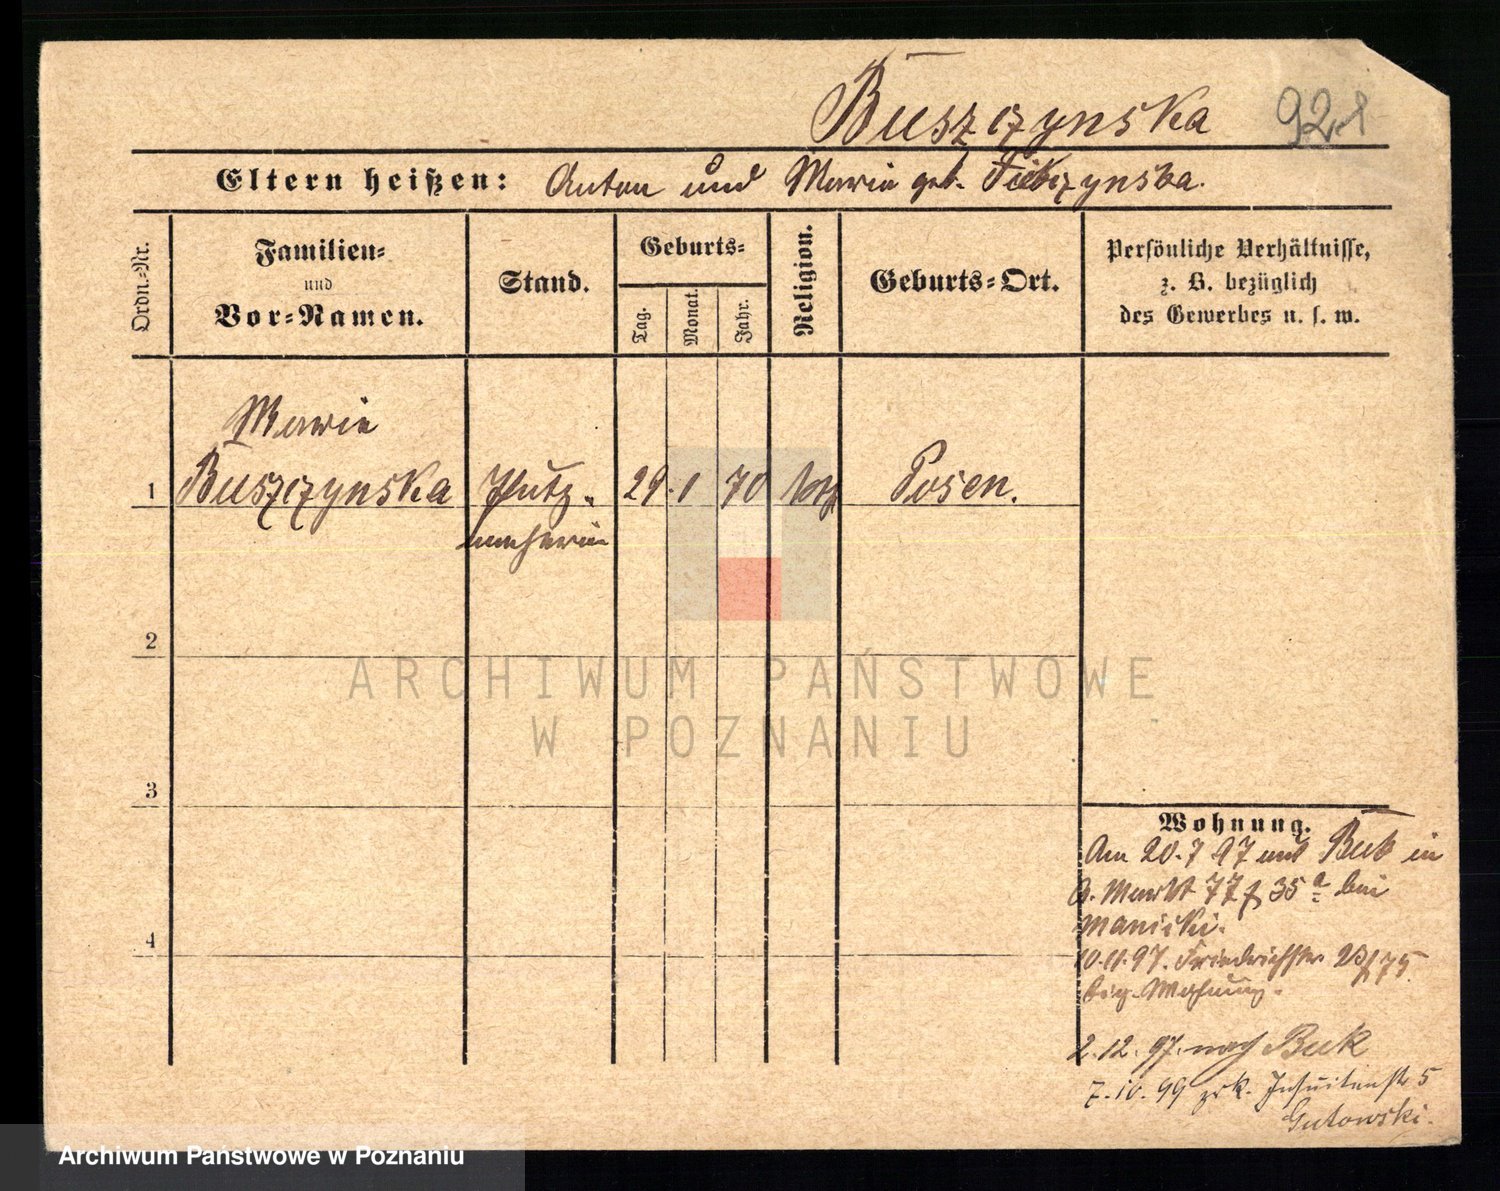 Buszczynska 921
Eltern heißen: Anton und Maria geb.
Ordn.=Nr.
Familien=
und
Vor=Namen.
Stand.
Geburts=
Tag.
Monat.
Jahr.
Religion.
Geburts=Ort.
Persönliche Verhältnisse,
z. B. bezüglich
des Gewerbes u. s. w.
Marie
1 Buszczynska Putz- 29. 1 70 Posen.
macherin
2
ARCHIWUM PAŃSTWOWE
W POZNANIU
3
4
Wohnung.
Am 20.7 97 aus Buk in
A. Markt 77 35 a bei
Manicki.
10.11.97. Friedrichstr. 23 75
eig. Wohnung.
2.12.97. nach Buk
7.10.99 zrk. Jesuitenstr 5
Gutowski.
Archiwum Państwowe w Poznaniu